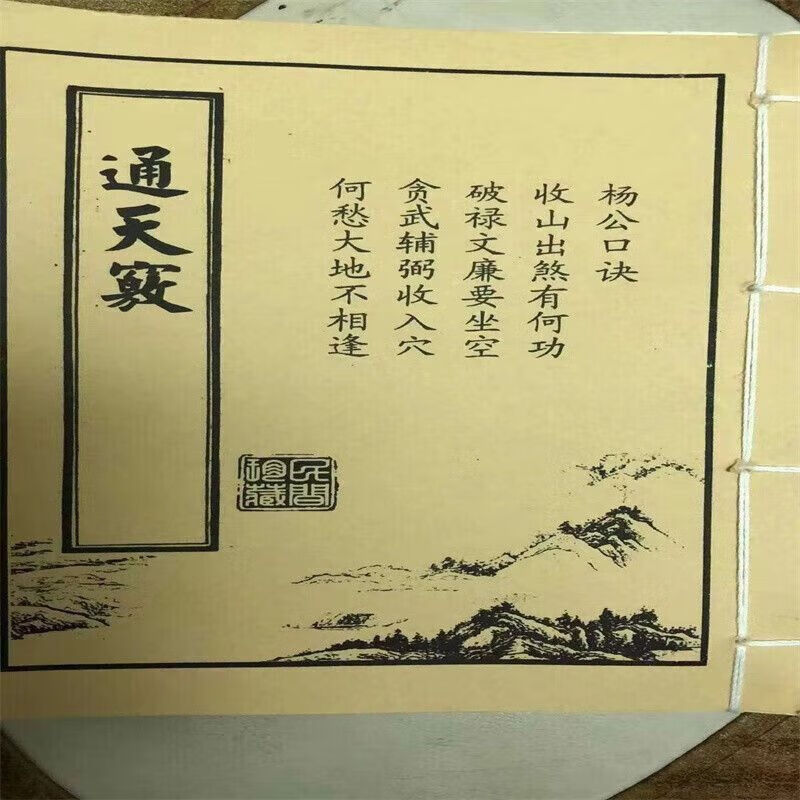 杨公口诀
收山出煞有何功
破禄文廉要坐空
贪武辅弼收入穴
何愁大地不相逢
通天窍
民间
珍藏